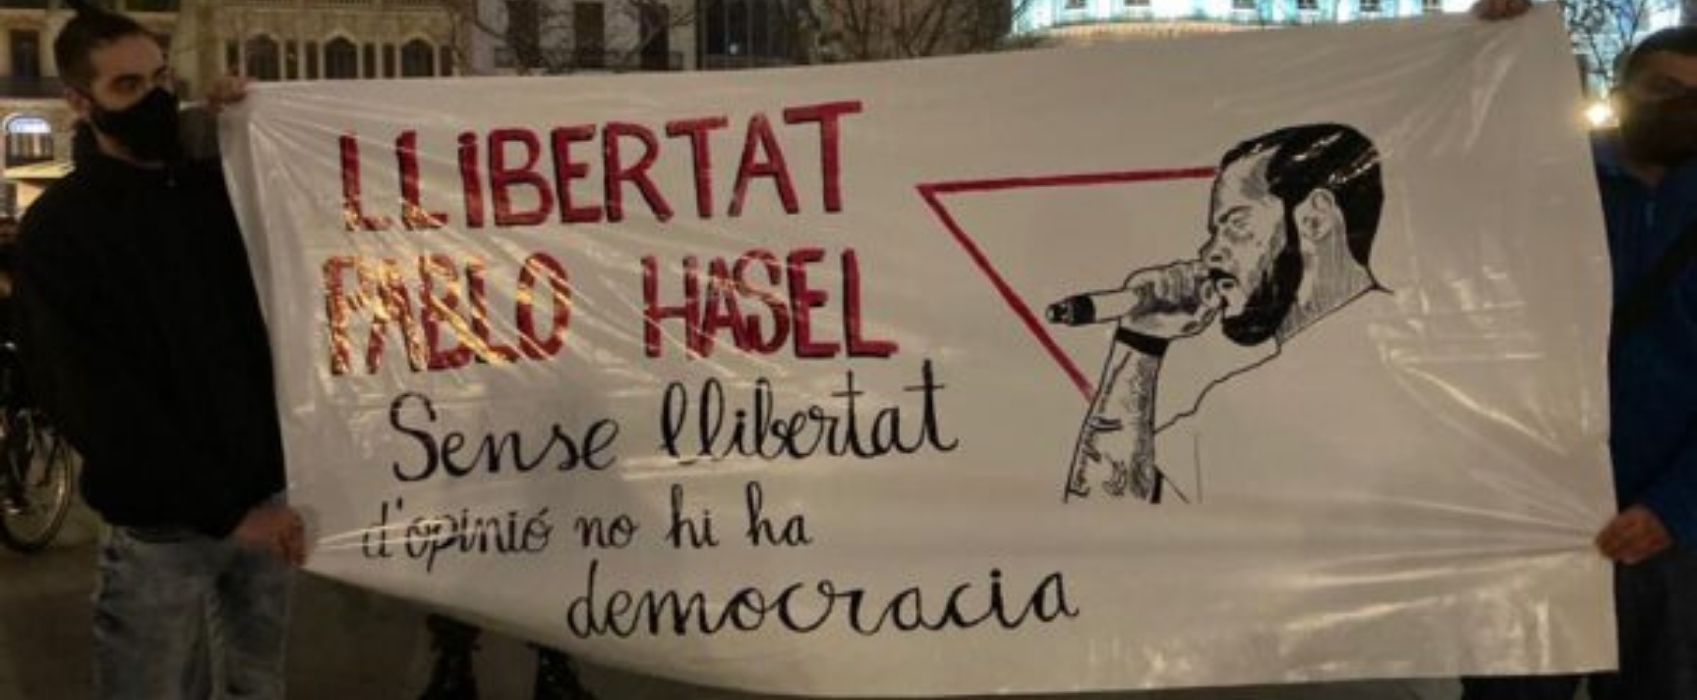 LLiBERTAT
PABLO HASEL
Sense llibertat
d'opinió no hi ha
democracia